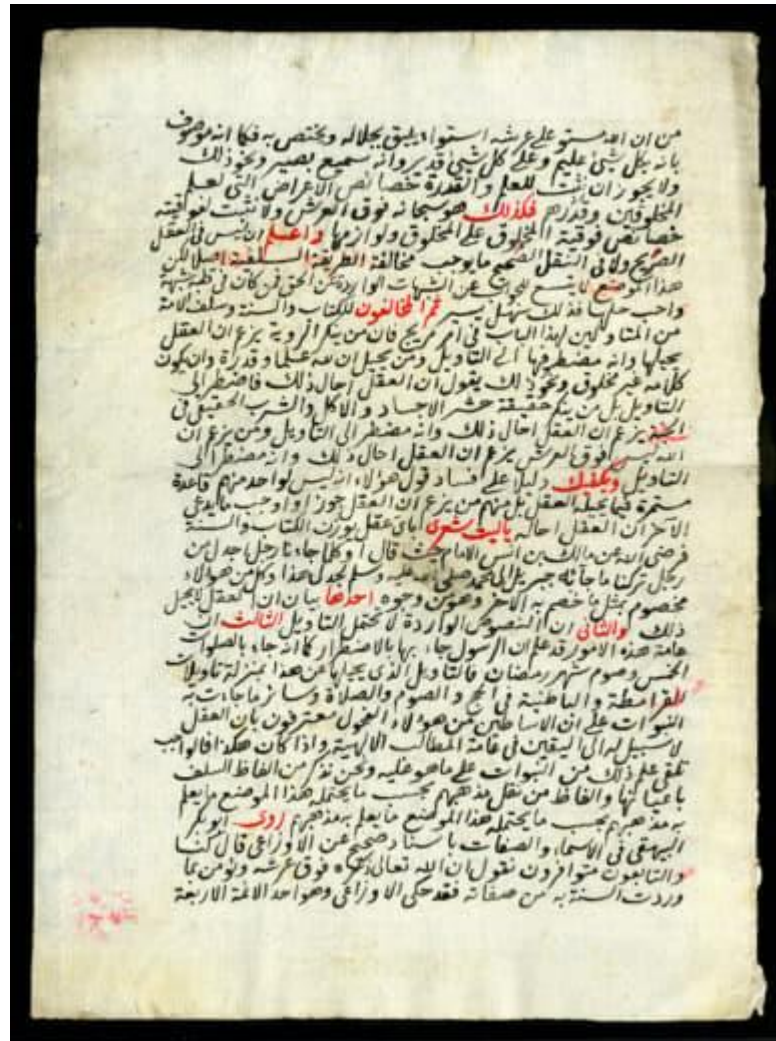 من ان الله مستو على عرشه استواء يليق بجلاله ويختص به فكما انه موصوف
بانه بكل شيئ عليم وعلى كل شيئ قدير وانه سميع بصير ونحو ذلك
ولا يجوز ان يثبت للعلم والقدرة خصائص الاعراض التي لعلم
المخلوقين وقدرهم فكذلك هو سبحانه فوق العرش ولا نثبت لفوقيته
خصائص فوقية المخلوق على المخلوق ولوازمها واعلم ان ليس في العقل
الصريح ولا في النقل الصحيح ما يوجب مخالفة الطريقة السلفية اصلا لكن
هذا الموضع لا يتسع للجواب عن الشبهات الواردة عن الحق فمن كان في قلبه شبهة
واحب حلها فذلك سهل يسير ثم المخالفون للكتاب والسنة وسلف الامة
من المتاولين لهذا الباب في امر مريج فان من ينكر الروية يزعم ان العقل
يحيلها وانه مضطر فيها الى التاويل ومن يحيل ان لله علما وقدرة وان يكون
كلامه غير مخلوق ونحو ذلك يقول ان العقل احال ذلك فاضطر الى
التاويل بل من ينكر حقيقة حشر الاجساد والاكل والشرب الحقيقي في
الجنة يزعم ان العقل احال ذلك وانه مضطر الى التاويل ومن يزعم ان
الله ليس فوق العرش يزعم ان العقل احال ذلك وانه مضطر الى
التاويل ويكفيك دليلا على افساد قول هؤلاء انه ليس لواحد منهم قاعدة
مستمرة فيما يحيله العقل بل منهم من يزعم ان العقل جوز او اوجب ما يدعي
الاخر ان العقل احاله ياليت شعري باي عقل يوزن الكتاب والسنة
فرضي الله عن مالك بن انس الامام حيث قال او كلما جاءنا رجل اجدل من
رجل تركنا ما جاء به جبريل الى محمد صلى الله عليه وسلم لجدل هذا وكل من هؤلاء
مخصوم بمثل ما خصم به الاخر وهو من وجوه احدها بيان ان العقل لا يحيل
ذلك والثاني ان النصوص الواردة لا تحتمل التاويل الثالث ان
عامة هذه الامور قد علم ان الرسول جاء بها بالاضطرار كما انه جاء بالصلوات
الخمس وصوم شهر رمضان فالتاويل الذي يحيلها عن هذا بمنزلة تاويل
القرامطة والباطنية في الحج والصوم والصلاة وسائر ما جاءت به
النبوات على ان الاساطين من هؤلاء الفحول معترفون بان العقل
لا سبيل له الى اليقين في عامة المطالب الالهية واذا كان هكذا فالواجب
تلقي علم ذلك من النبوات على ما هو عليه ونحن نذكر من الفاظ السلف
باعيانها والفاظ من نقل مذهبهم بحسب ما يحتمله هذا الموضع ما يعلم
به مذهبهم بحسب ما يحتمله هذا الموضع ما يعلم به مذهبهم روى ابو بكر
البيهقي في الاسماء والصفات باسناد صحيح عن الاوزاعي قال كنا
والتابعون متوافرون نقول ان الله تعالى ذكره فوق عرشه ونومن بما
وردت السنة به من صفاته فقد حكى الاوزاعي وهو احد الائمة الاربعة